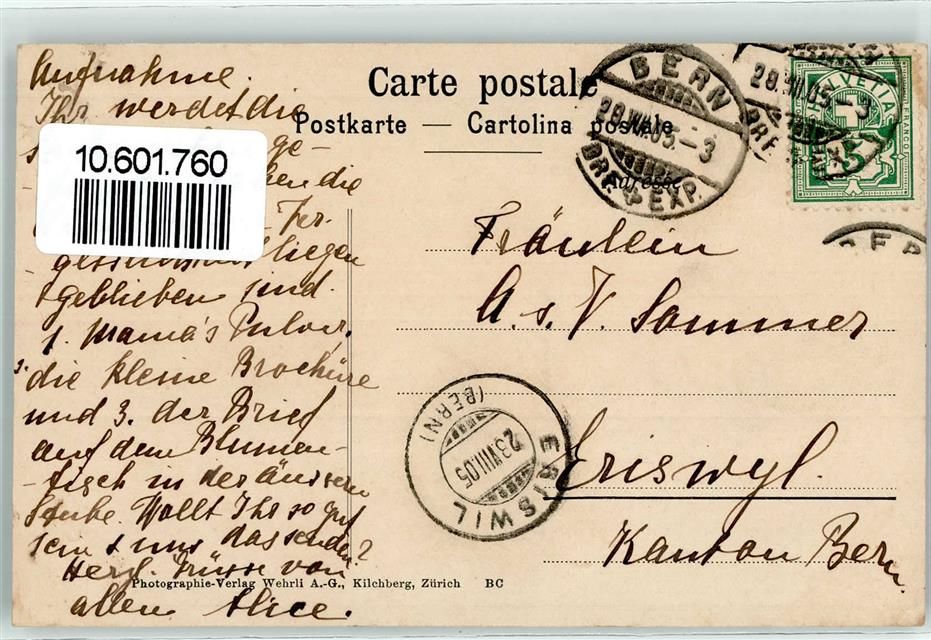 Carte postale
Postkarte — Cartolina postale
Adresse
BERN
28.VIII.05.-3
BRF. EXP.
28.VIII.05.-3
HELVETIA
FRANCO
5
10.601.760
Aufnahme.
Ihr werdet die
ge-
die
liegen
geblieben sind.
1. Mama's Pulver,
2. die kleine Brochüre
und 3. der Brief
auf dem Blumen-
tisch in der äussern
Stube. Wollt Ihr so gut
sein & uns das senden?
Herzl. Grüsse von
allen Alice.
Fräulein
A. s. V. Sommer
Eriswyl.
Kanton Bern.
ERISWIL
(BERN)
23.VIII.05
Photographie-Verlag Wehrli A.-G., Kilchberg, Zürich BC